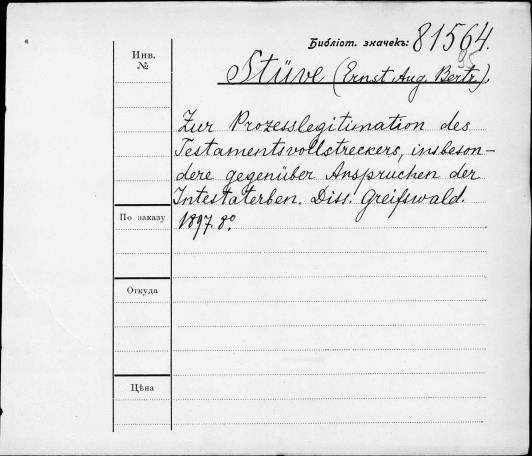 Библіот. значекъ: 81564.
95
Инв.
№
Stüve (Ernst Aug. Bertr.).
Zur Prozesslegitimation des
Testamentsvollstreckers, insbeson-
dere gegenüber Anspruchen der
Intestaterben. Diss. Greifswald.
1897. 8°.
По заказу
Откуда
Цѣна